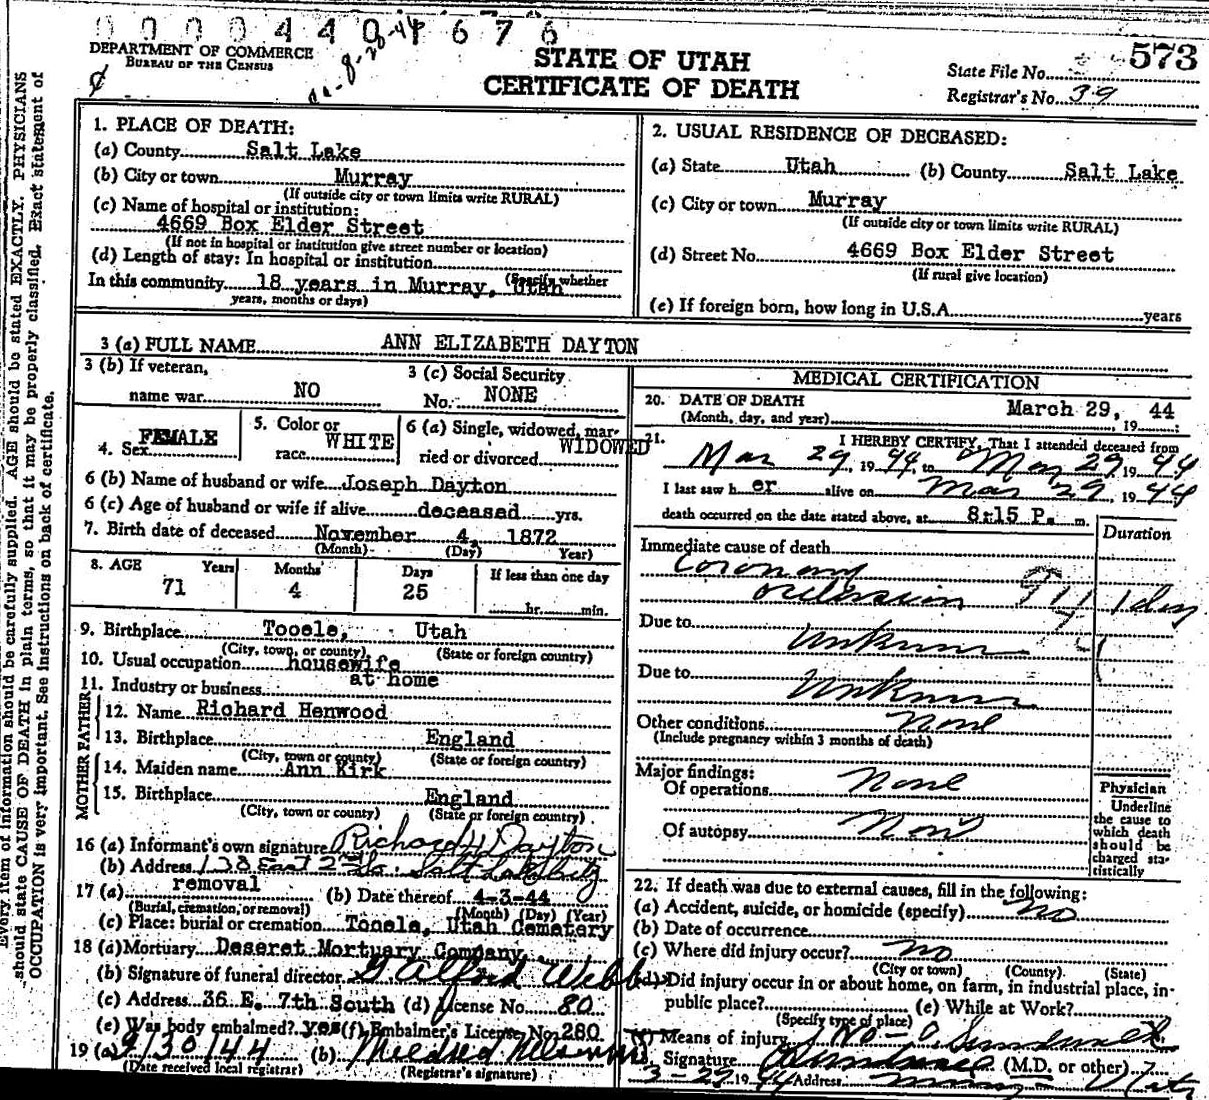 0 0 0 0 4 4 0 4 6 7 6
DEPARTMENT OF COMMERCE
BUREAU OF THE CENSUS
STATE OF UTAH
CERTIFICATE OF DEATH
State File No. 573
Registrar's No. 39
Every item of information should be carefully supplied. AGE should be stated EXACTLY. PHYSICIANS
should state CAUSE OF DEATH in plain terms, so that it may be properly classified. Exact statement of
OCCUPATION is very important. See instructions on back of certificate.
1. PLACE OF DEATH:
(a) County Salt Lake
(b) City or town Murray
(If outside city or town limits write RURAL)
(c) Name of hospital or institution:
4669 Box Elder Street
(If not in hospital or institution give street number or location)
(d) Length of stay: In hospital or institution
(Specify whether
In this community 18 years in Murray, Utah
years, months or days)
2. USUAL RESIDENCE OF DECEASED:
(a) State Utah (b) County Salt Lake
(c) City or town Murray
(If outside city or town limits write RURAL)
(d) Street No. 4669 Box Elder Street
(If rural give location)
(e) If foreign born, how long in U.S.A. years
3 (a) FULL NAME ANN ELIZABETH DAYTON
3 (b) If veteran,
name war NO
3 (c) Social Security
No. NONE
4. Sex FEMALE
5. Color or
race WHITE
6 (a) Single, widowed, mar-
ried or divorced WIDOWED
6 (b) Name of husband or wife Joseph Dayton
6 (c) Age of husband or wife if alive deceased yrs.
7. Birth date of deceased November 4, 1872
(Month) (Day) Year)
8. AGE Years Months Days If less than one day
71 4 25 hr. min.
9. Birthplace Tooele, Utah
(City, town, or county) (State or foreign country)
10. Usual occupation housewife
11. Industry or business at home
FATHER
12. Name Richard Henwood
13. Birthplace England
(City, town or county) (State or foreign country)
MOTHER
14. Maiden name Ann Kirk
15. Birthplace England
(City, town or county) (State or foreign country)
16 (a) Informant's own signature Richard H Dayton
(b) Address 138 East 2nd So. Salt Lake City
17 (a) removal (b) Date thereof 4-3-44
(Burial, cremation, or removal) (Month) (Day) (Year)
(c) Place: burial or cremation Tooele, Utah Cemetery
18 (a) Mortuary Deseret Mortuary Company
(b) Signature of funeral director G Alford Webb
(c) Address 36 E. 7th South (d) License No. 80
(e) Was body embalmed? yes (f) Embalmer's License No. 280
19 (a) 3/30/44 (b) Mildred
(Date received local registrar) (Registrar's signature)
MEDICAL CERTIFICATION
20. DATE OF DEATH
(Month, day, and year) March 29, 19 44
21. I HEREBY CERTIFY, That I attended deceased from
Mar 29, 19 44, to Mar 29 19 44
I last saw h er alive on Mar 29, 19 44
death occurred on the date stated above, at 8:15 P. m.
Duration
Immediate cause of death
Coronary
occlusion 1 day
Due to
Unknown
Due to
Unknown
Other conditions None
(Include pregnancy within 3 months of death)
Major findings:
Of operations None
Of autopsy None
Physician
Underline
the cause to
which death
should be
charged sta-
tistically
22. If death was due to external causes, fill in the following:
(a) Accident, suicide, or homicide (specify) No
(b) Date of occurrence
(c) Where did injury occur? no
(City or town) (County) (State)
(d) Did injury occur in or about home, on farm, in industrial place, in-
public place? (e) While at Work?
(Specify type of place)
(f) Means of injury No
Signature (M.D. or other)
3-29 19 44 Address Murray Utah